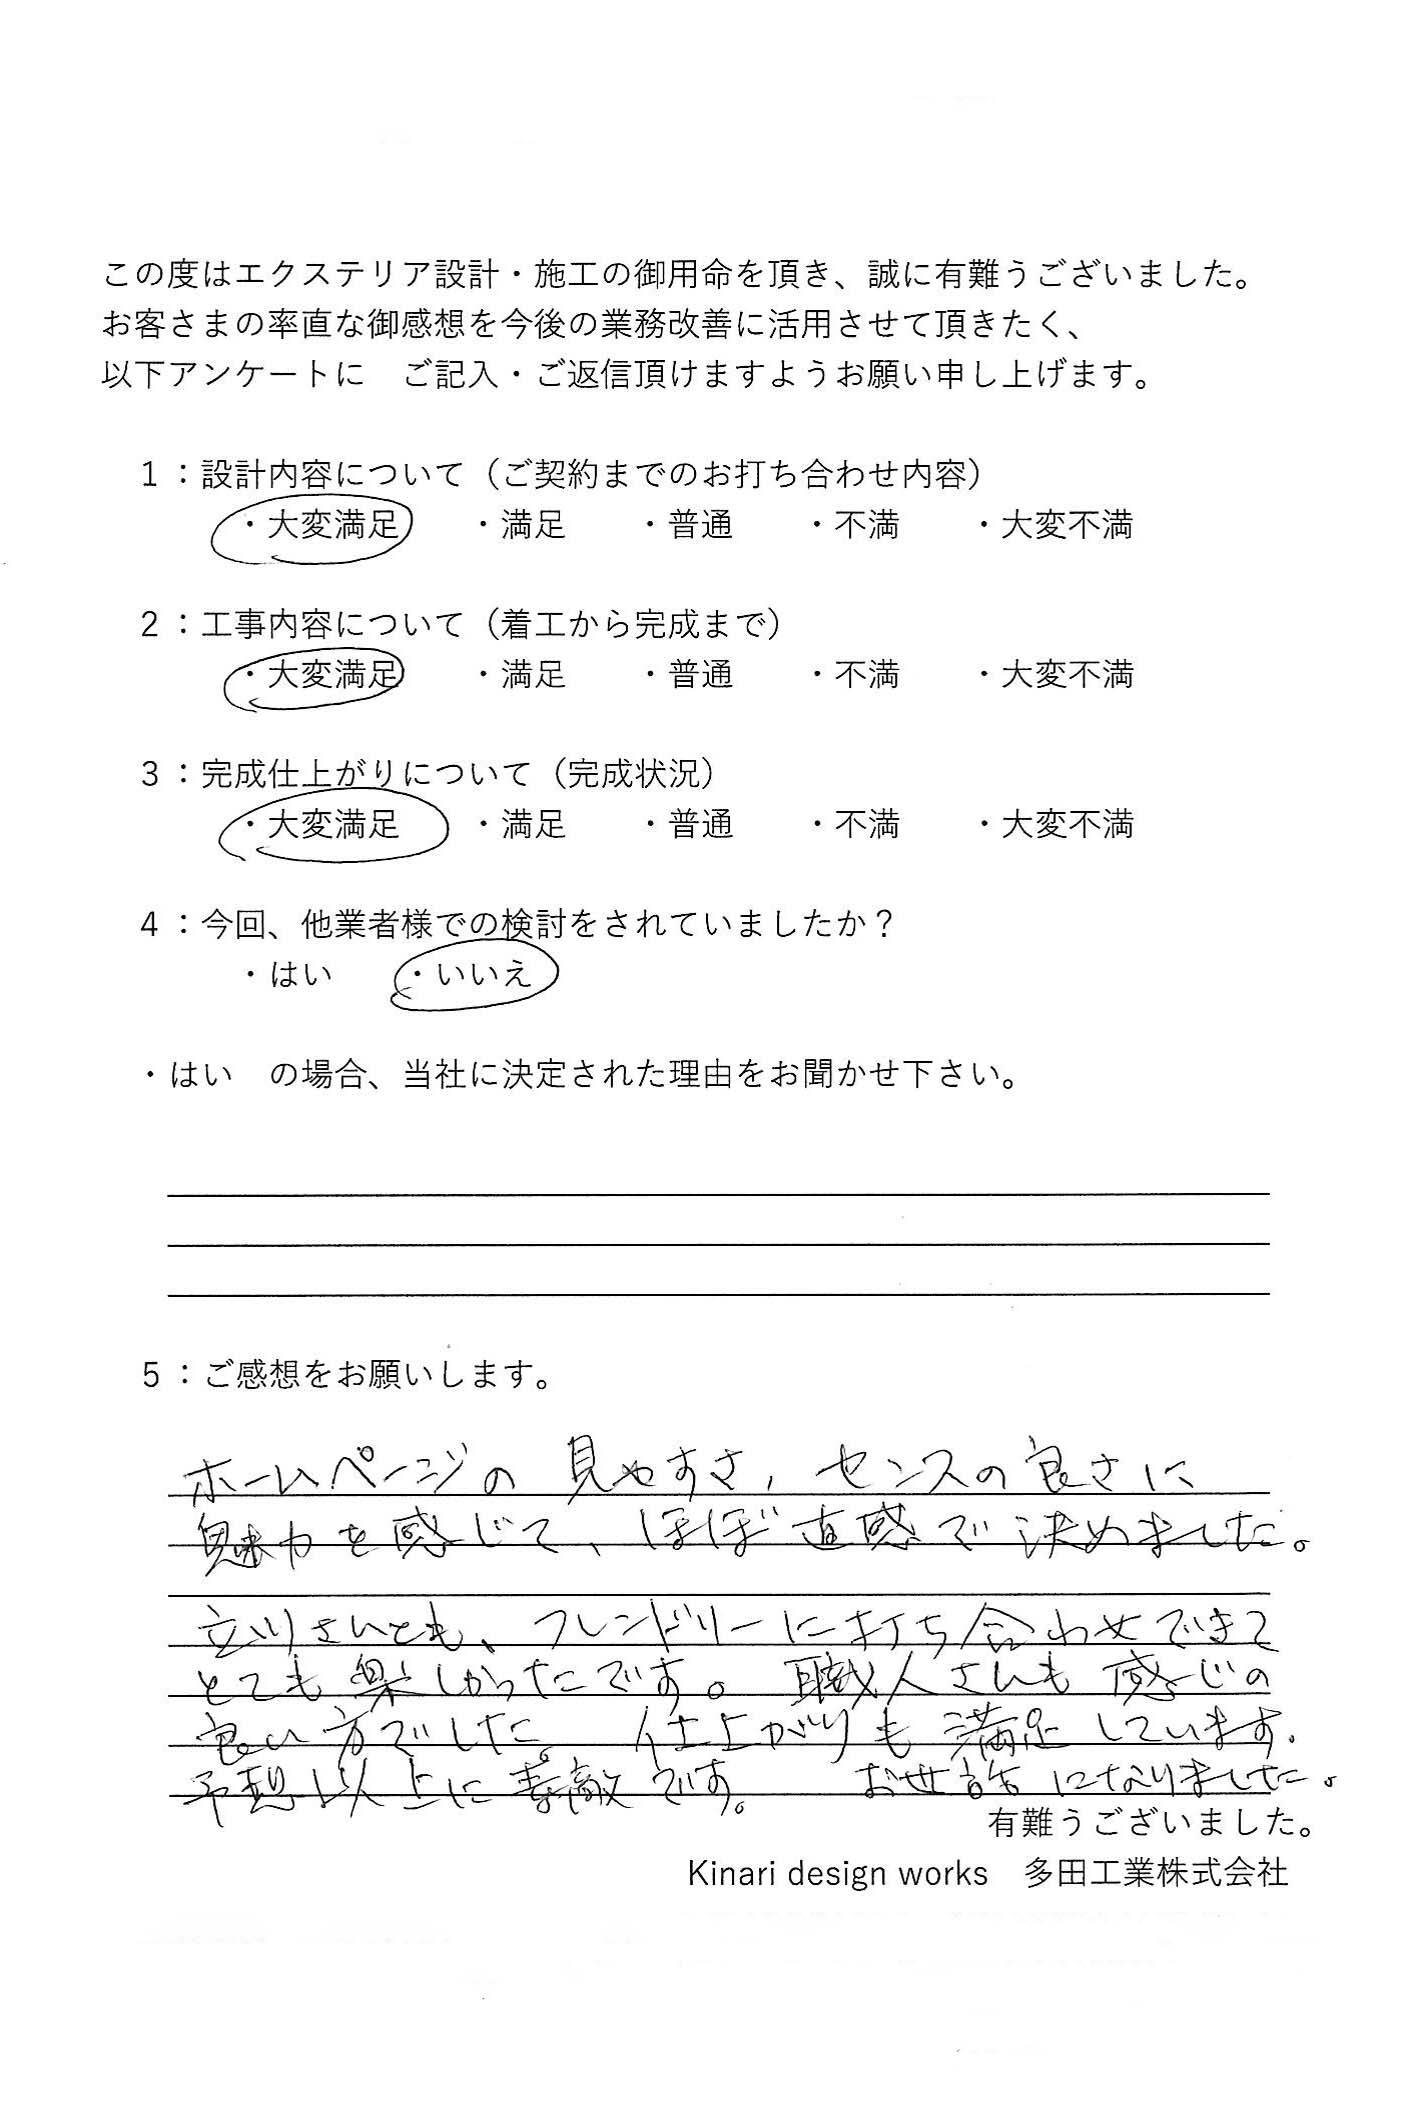 この度はエクステリア設計・施工の御用命を頂き、誠に有難うございました。
お客さまの率直な御感想を今後の業務改善に活用させて頂きたく、
以下アンケートに　ご記入・ご返信頂けますようお願い申し上げます。
1：設計内容について（ご契約までのお打ち合わせ内容）
・大変満足　・満足　・普通　・不満　・大変不満
2：工事内容について（着工から完成まで）
・大変満足　・満足　・普通　・不満　・大変不満
3：完成仕上がりについて（完成状況）
・大変満足　・満足　・普通　・不満　・大変不満
4：今回、他業者様での検討をされていましたか？
・はい　・いいえ
・はい　の場合、当社に決定された理由をお聞かせ下さい。
5：ご感想をお願いします。
ホームページの 見やすさ、センスの良さに
魅力を感じて、ほぼ直感で決めました。
立川さんとも、フレンドリーに打ち合わせできて
とても楽しかったです。職人さんも感じの
良い方でした。仕上がりも満足しています。
予想以上に素敵です。　お世話になりました。
有難うございました。
Kinari design works　多田工業株式会社